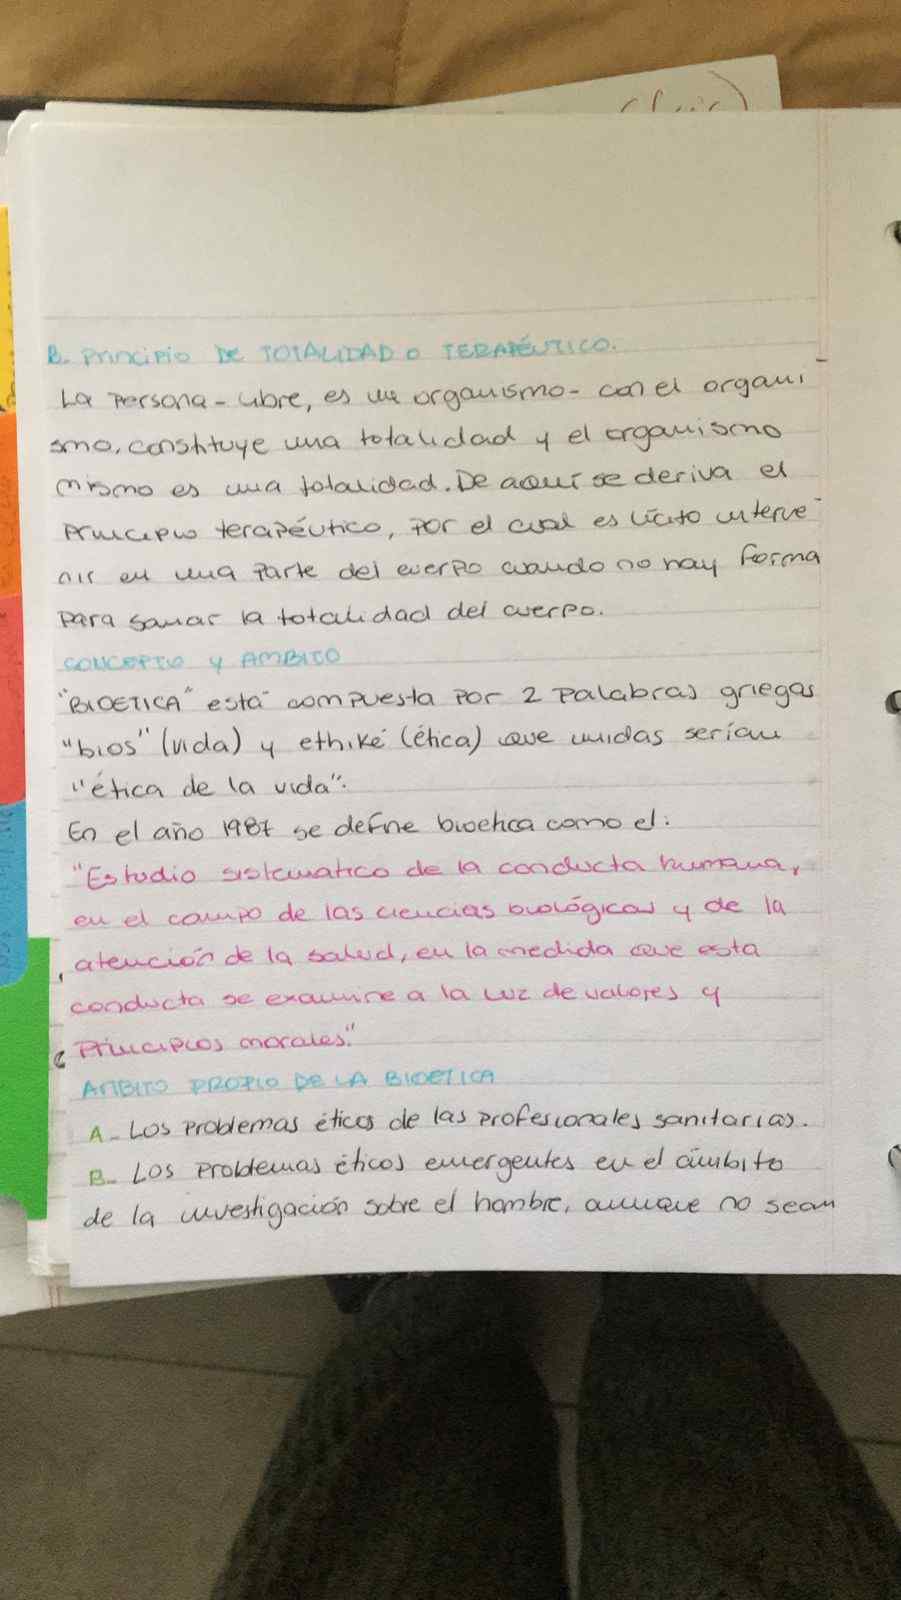 B. Principio DE TOTALIDAD O TERAPÉUTICO.
La persona - libre, es un organismo - con el organi-
smo, constituye una totalidad y el organismo
mismo es una totalidad. De aquí se deriva el
principio terapéutico, por el cual es lícito interve-
nir en una parte del cuerpo cuando no hay forma
para sanar la totalidad del cuerpo.
CONCEPTO Y AMBITO
"BIOETICA" está compuesta por 2 palabras griegas
"bios" (vida) y ethiké (ética) que unidas serían
"ética de la vida".
En el año 1987 se define bioetica como el:
"Estudio sistematico de la conducta humana,
en el campo de las ciencias biológicas y de la
atención de la salud, en la medida que esta
conducta se examine a la luz de valores y
principios morales."
AMBITO PROPIO DE LA BIOETICA
A- Los problemas éticos de las profesionales sanitarias.
B- Los problemas éticos emergentes en el ámbito
de la investigación sobre el hombre, aunque no sean